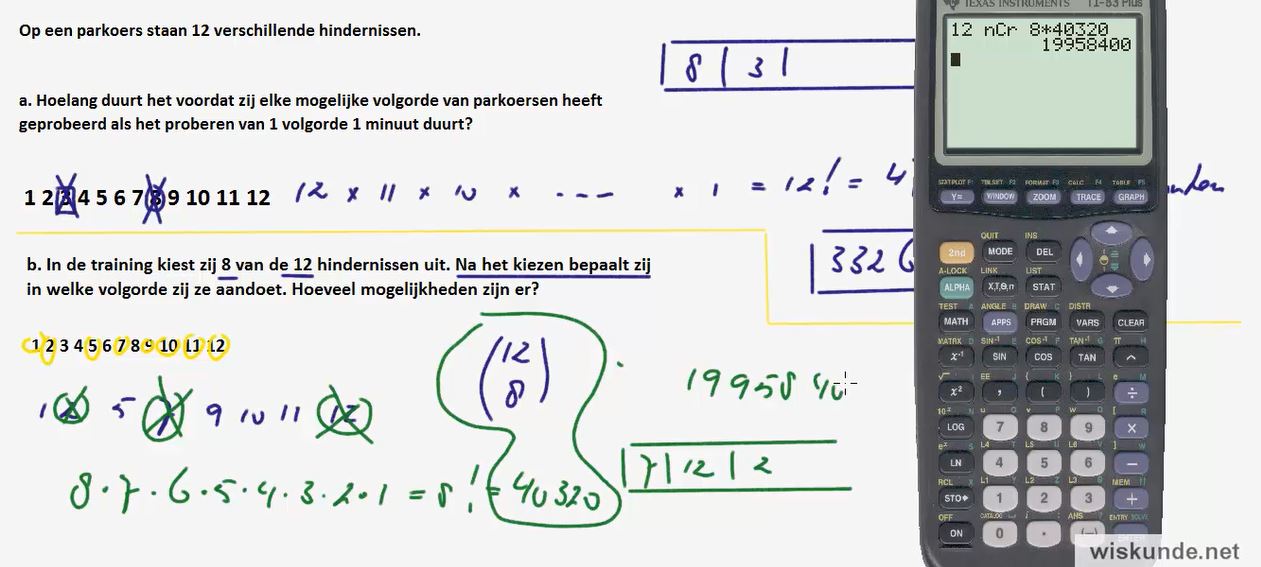 Op een parkoers staan 12 verschillende hindernissen.
8 | 3 |
a. Hoelang duurt het voordat zij elke mogelijke volgorde van parkoersen heeft
geprobeerd als het proberen van 1 volgorde 1 minuut duurt?
1 2 3 4 5 6 7 8 9 10 11 12
12 × 11 × 10 × --- × 1 = 12! = 4
b. In de training kiest zij 8 van de 12 hindernissen uit. Na het kiezen bepaalt zij
in welke volgorde zij ze aandoet. Hoeveel mogelijkheden zijn er?
3326
1 2 3 4 5 6 7 8 9 10 11 12
1 2 5 7 9 10 11 12
(12 8) · 19958 40
7 | 12 | 2
8·7·6·5·4·3·2·1 = 8! = 40320
TEXAS INSTRUMENTS TI-83 Plus
12 nCr 8*40320
19958400
STAT PLOT F1 TBLSET F2 FORMAT F3 CALC F4 TABLE F5
Y= WINDOW ZOOM TRACE GRAPH
QUIT INS
2nd MODE DEL
A-LOCK LINK LIST
ALPHA X,T,θ,n STAT
TEST A ANGLE B DRAW C DISTR
MATH APPS PRGM VARS CLEAR
MATRX D SIN⁻¹ E COS⁻¹ F TAN⁻¹ G π H
x⁻¹ SIN COS TAN ^
√ I EE J { K } L e M
x² , ( ) ÷
10ˣ N u O v P w Q [ R
LOG 7 8 9 ×
eˣ S L4 T L5 U L6 V ] W
LN 4 5 6 −
RCL X L1 Y L2 Z L3 θ MEM "
STO▸ 1 2 3 +
OFF CATALOG i : ANS ? ENTRY SOLVE
ON 0 . (−)
wiskunde.net